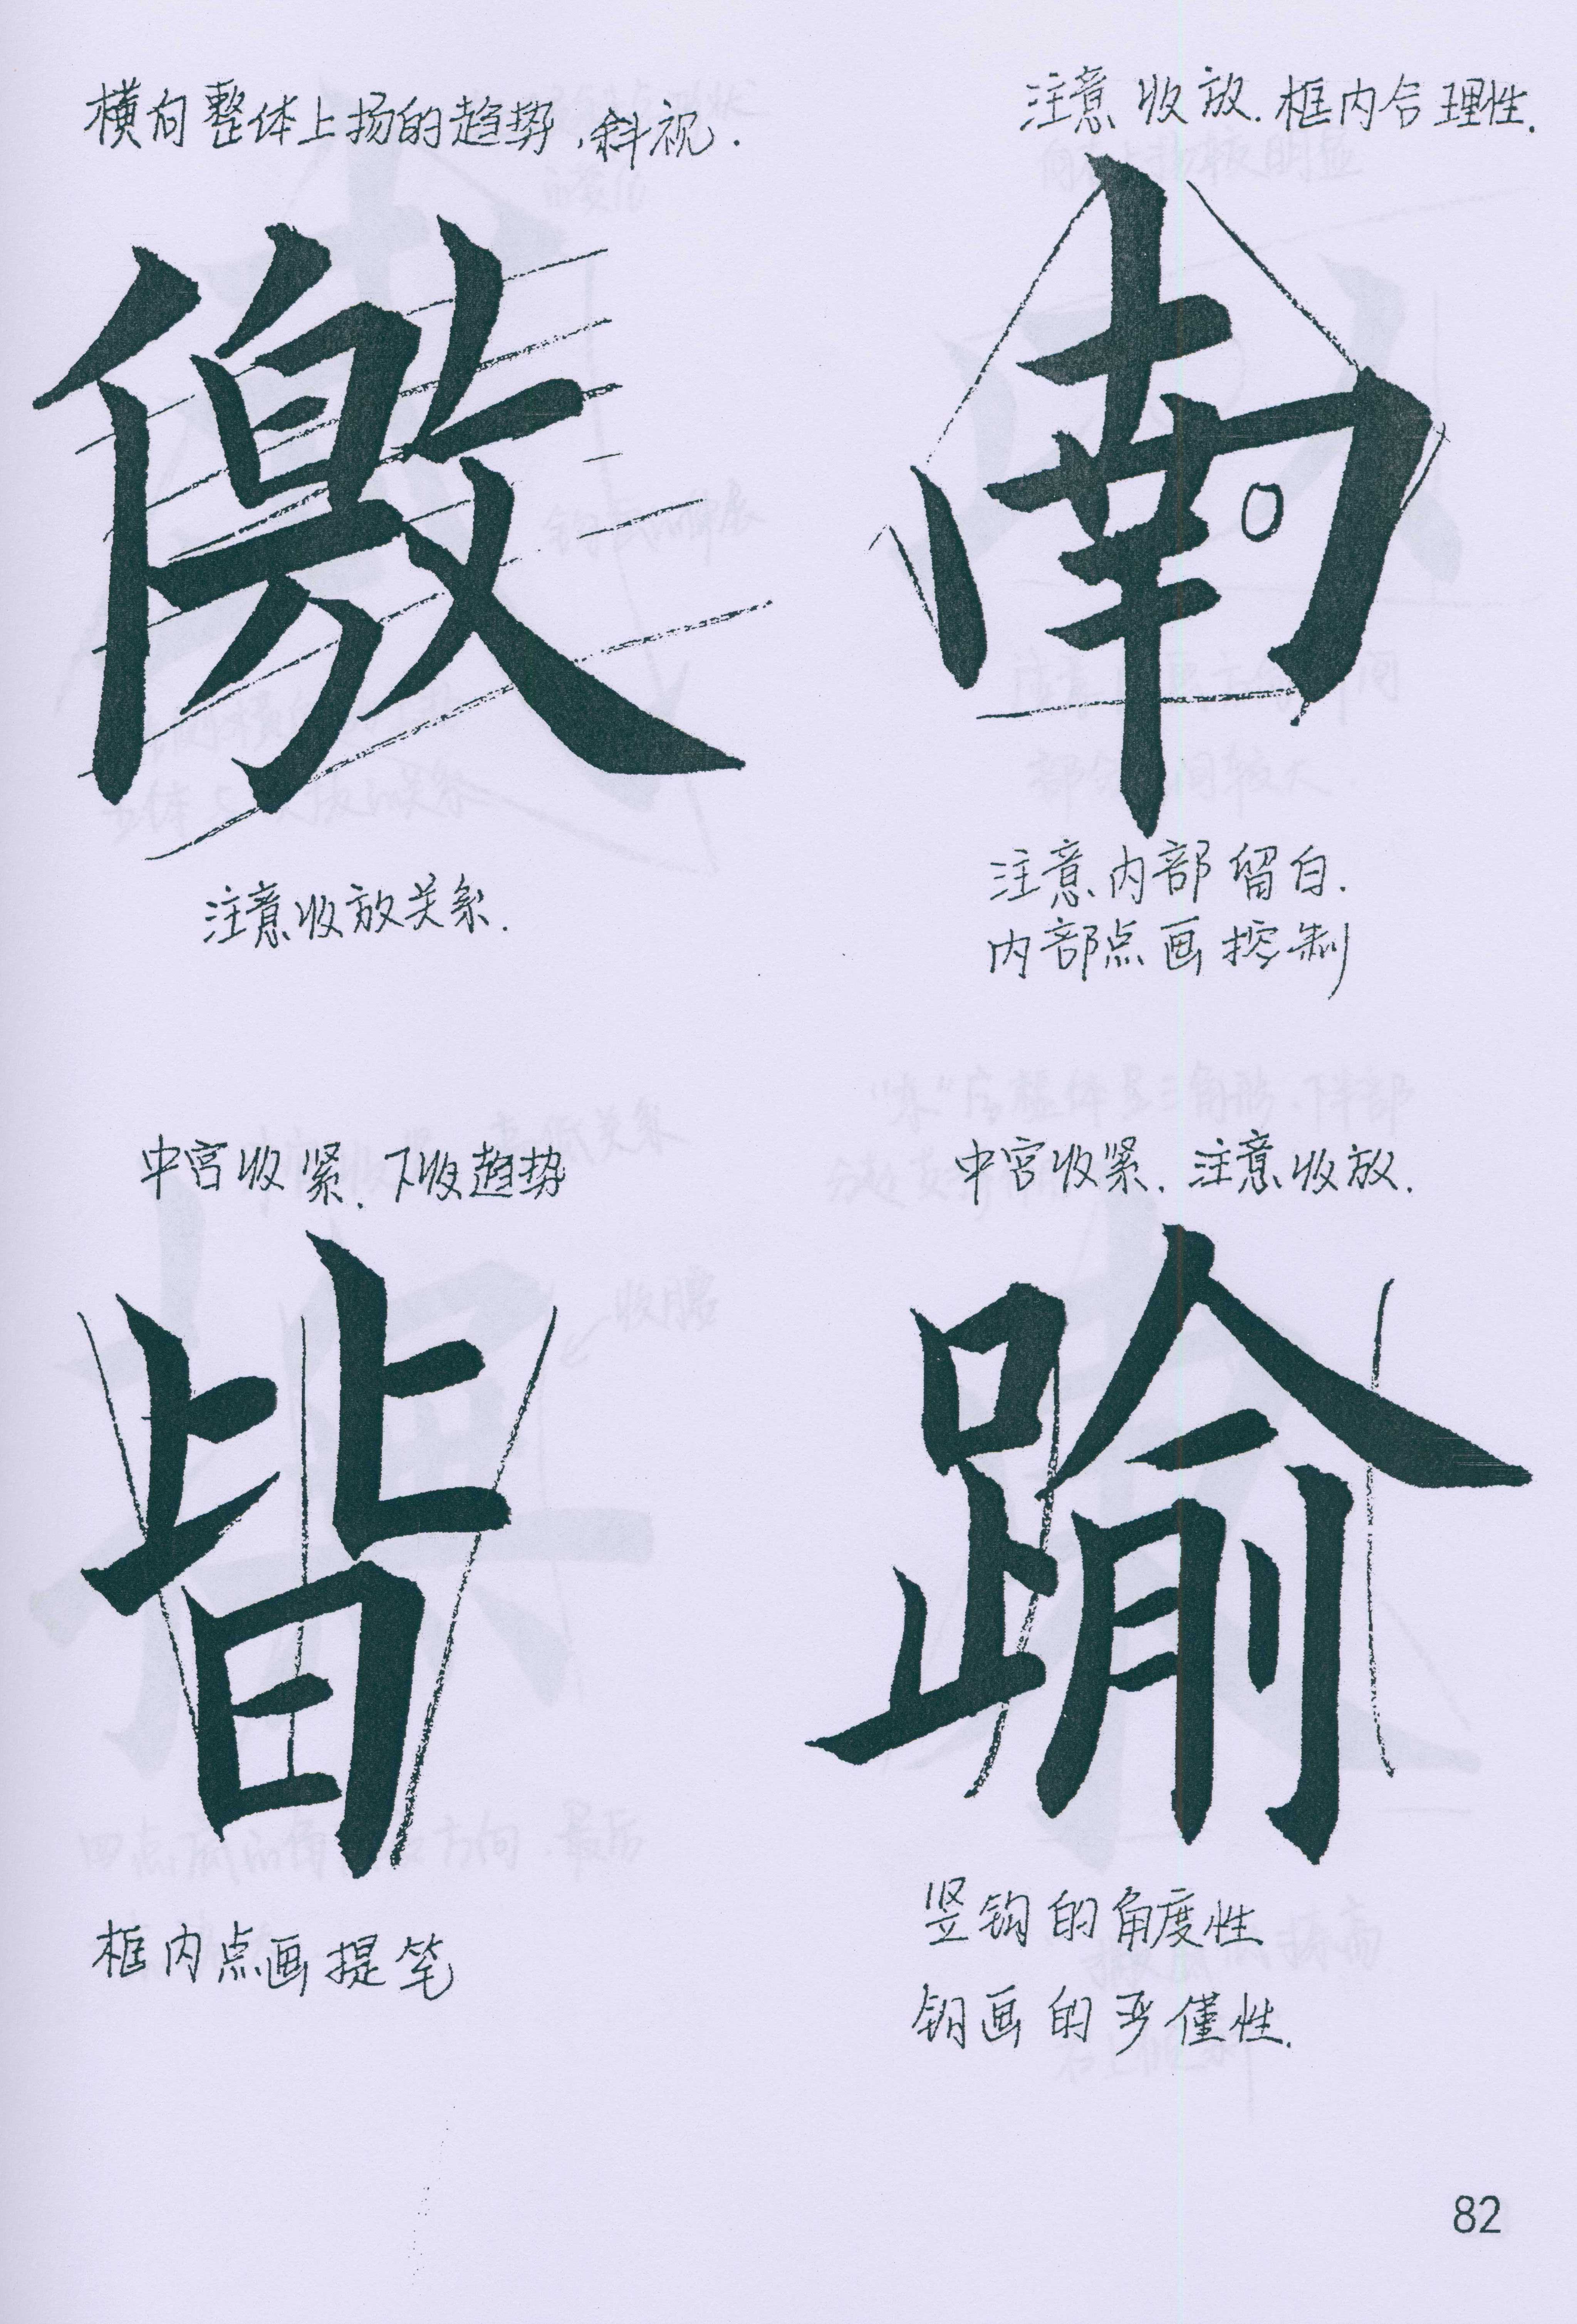 横向整体上扬的趋势,斜视.
儌
注意收放关系.
注意收放.框内合理性.
南
注意内部留白.
内部点画控制
中宫收紧、下收趋势
皆
框内点画提笔
中宫收紧、注意收放.
踰
竖钩的角度性
钩画的严谨性.
82